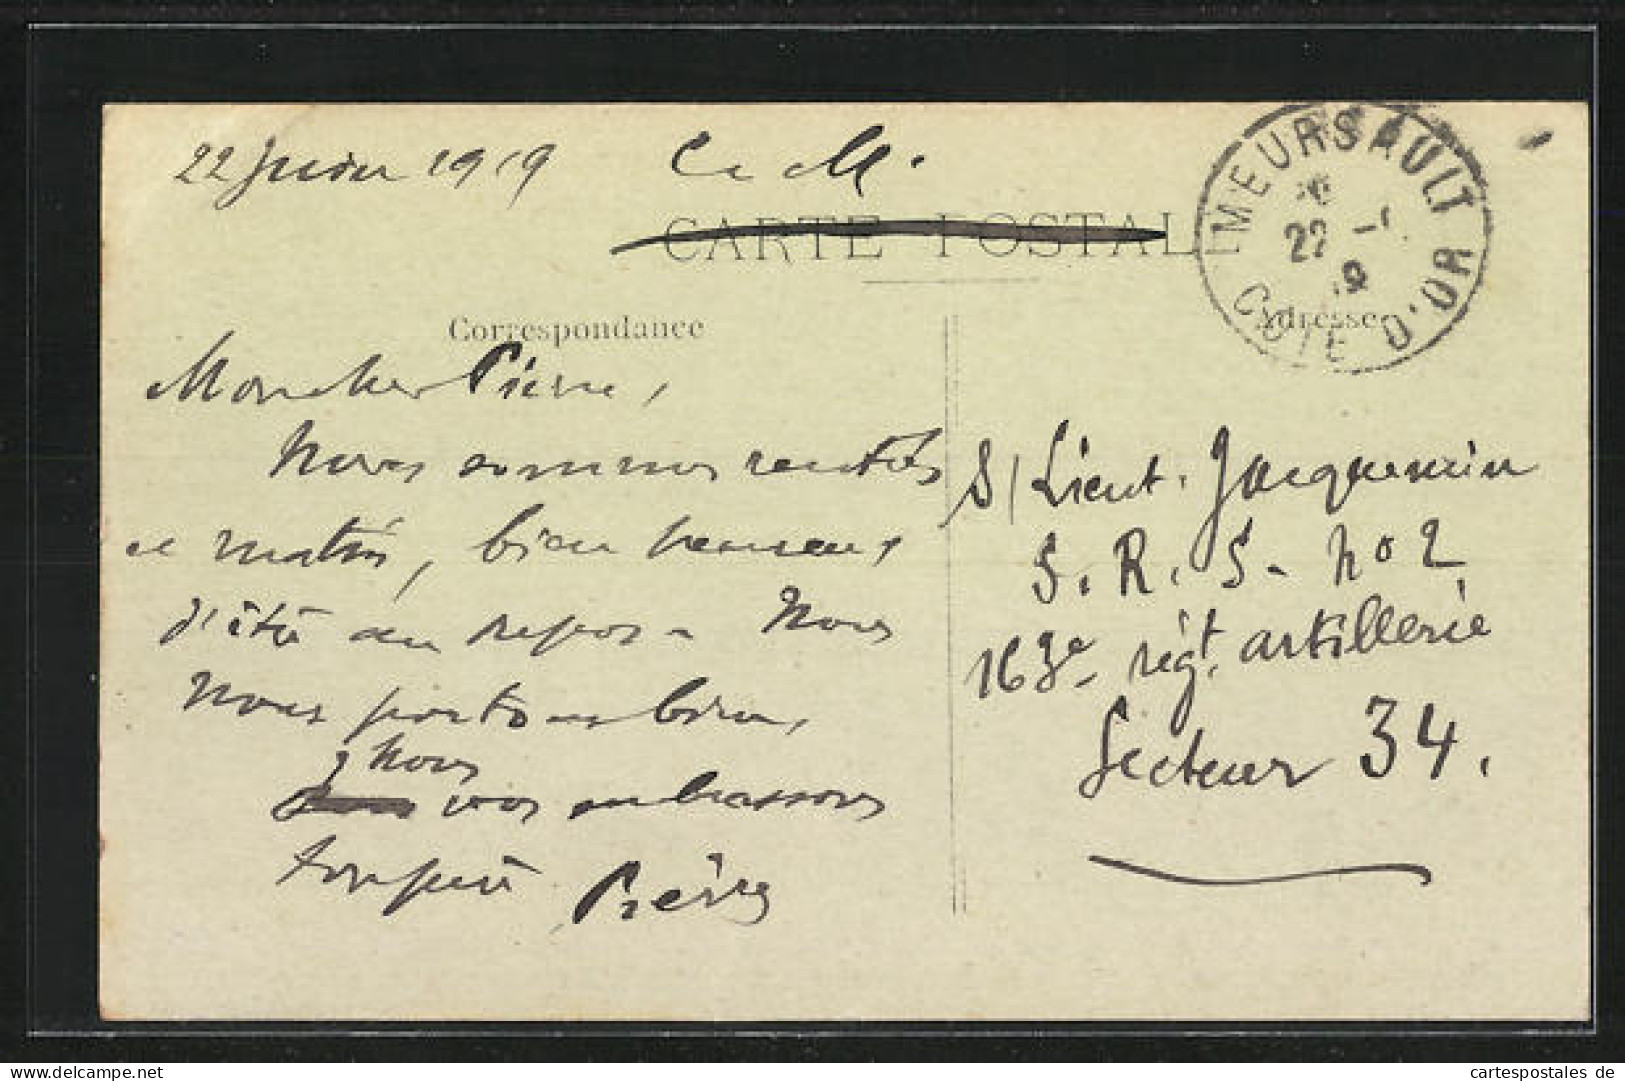 22 Janvier 1919
C. M.
CARTE POSTALE
MEURSAULT
22 -1
19
COTE D'OR
Correspondance
Adresse
Mon cher Pierre,
Nous sommes rentrés
ce matin, bien heureux
d'être au repos - Nous
nous portons bien,
Nous
vous embrassons
ton père Pierre
S/Lieut. Jacquemin
S. R. S. - No 2
163e régt. artillerie
Secteur 34.
www.cartespostales.de
cartespostales de